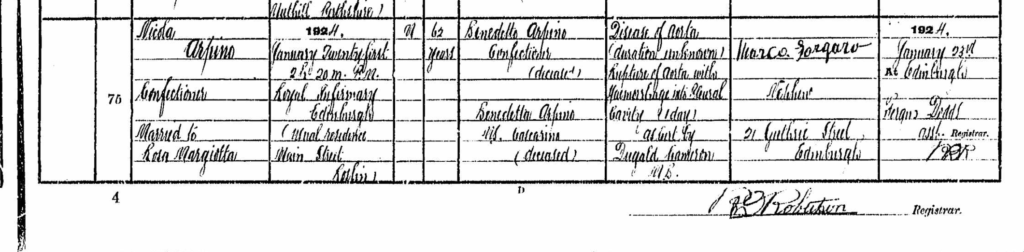 Muthill Perthshire)
Nicola
Arpino
Confectioner
Married to
Rosa Margiotta
75
1924,
January Twenty first
2h 20m. P.M.
Royal Infirmary
Edinburgh
(usual residence
Main Street
Roslin)
M
62
years
Benedetto Arpino
Confectioner
(deceased)
Benedetta Arpino
M.S.
(deceased)
Disease of Aorta
(duration unknown)
Rupture of Aorta with
Haemorrhage into Pleural
Cavity 1 day
as cert by
Dugald Cameron
M.B.
Marco
Nephew
21 Guthrie Street
Edinburgh
1924,
January 23rd
At Edinburgh
Dodds
asst. Registrar.
4
D
Robertson Registrar.